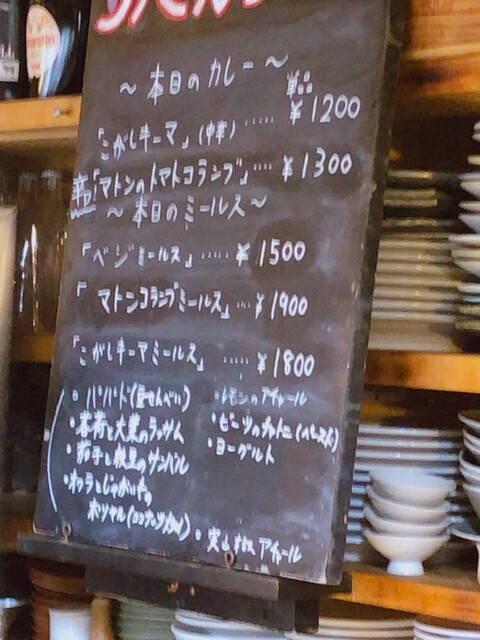 ～本日のカレー～
単品
「こがしキーマ」(中辛)‥‥‥ ¥1200
「マトンのトマトコランブ」‥‥ ¥1300
～本日のミールス～
「ベジミールス」‥‥‥ ¥1500
「マトンコランブミールス」‥‥ ¥1900
「こがしキーマミールス」‥‥‥ ¥1800
・パパド(豆せんべい)
・大葉のラッサム
・茄子と枝豆のサンバル
・オクラとじゃがいもの
ポリヤル(ココナッツ
・レモンのアチャール
・ビーツのチャトニ(ペースト)
・ヨーグルト
・アチャール